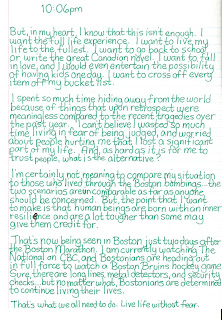 10:06pm
But, in my heart, I know that this isn't enough. I
want the full life experience. I want to live my
life to the fullest. I want to go back to school
or write the great Canadian novel. I want to fall
in love, and I would even entertain the possibility
of having kids one day. I want to cross off every
item off my bucket list.
I spent so much time hiding away from the world
because of things that upon retrospect were
meaningless compared to the recent tragedies over
the past year. I can't believe I wasted so much
time living in fear of being judged, and worried
about people hurting me that I lost a significant
part of my life. And as hard as it is for me to
trust people, what is the alternative?
I'm certainly not meaning to compare my situation
to those who lived through the Boston bombings... the
two scenarios aren't comparable as far as anyone
should be concerned. But, the point that I want
to make is that human beings are born with an inner
resilience and are a lot tougher than some may
give them credit for.
That's now being seen in Boston just two days after
the Boston Marathon. I am currently watching The
National on CBC, and Bostonians are heading out
in full force to watch a Boston Bruins hockey game.
Sure, there are long lines, metal detectors, and security
checks... but no matter what, Bostonians are determined
to continue living their lives.
That's what we all need to do. Live life without fear.